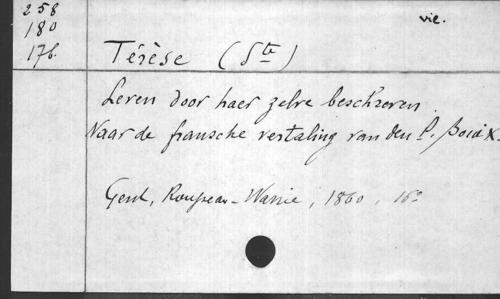 258
180
176.
vie.
Térèse (Ste)
Leven door haer zelve beschreven.
Naar de fransche vertaling van den P. Bouix.
Gend, Rousseau-Wanie, 1860, 16°